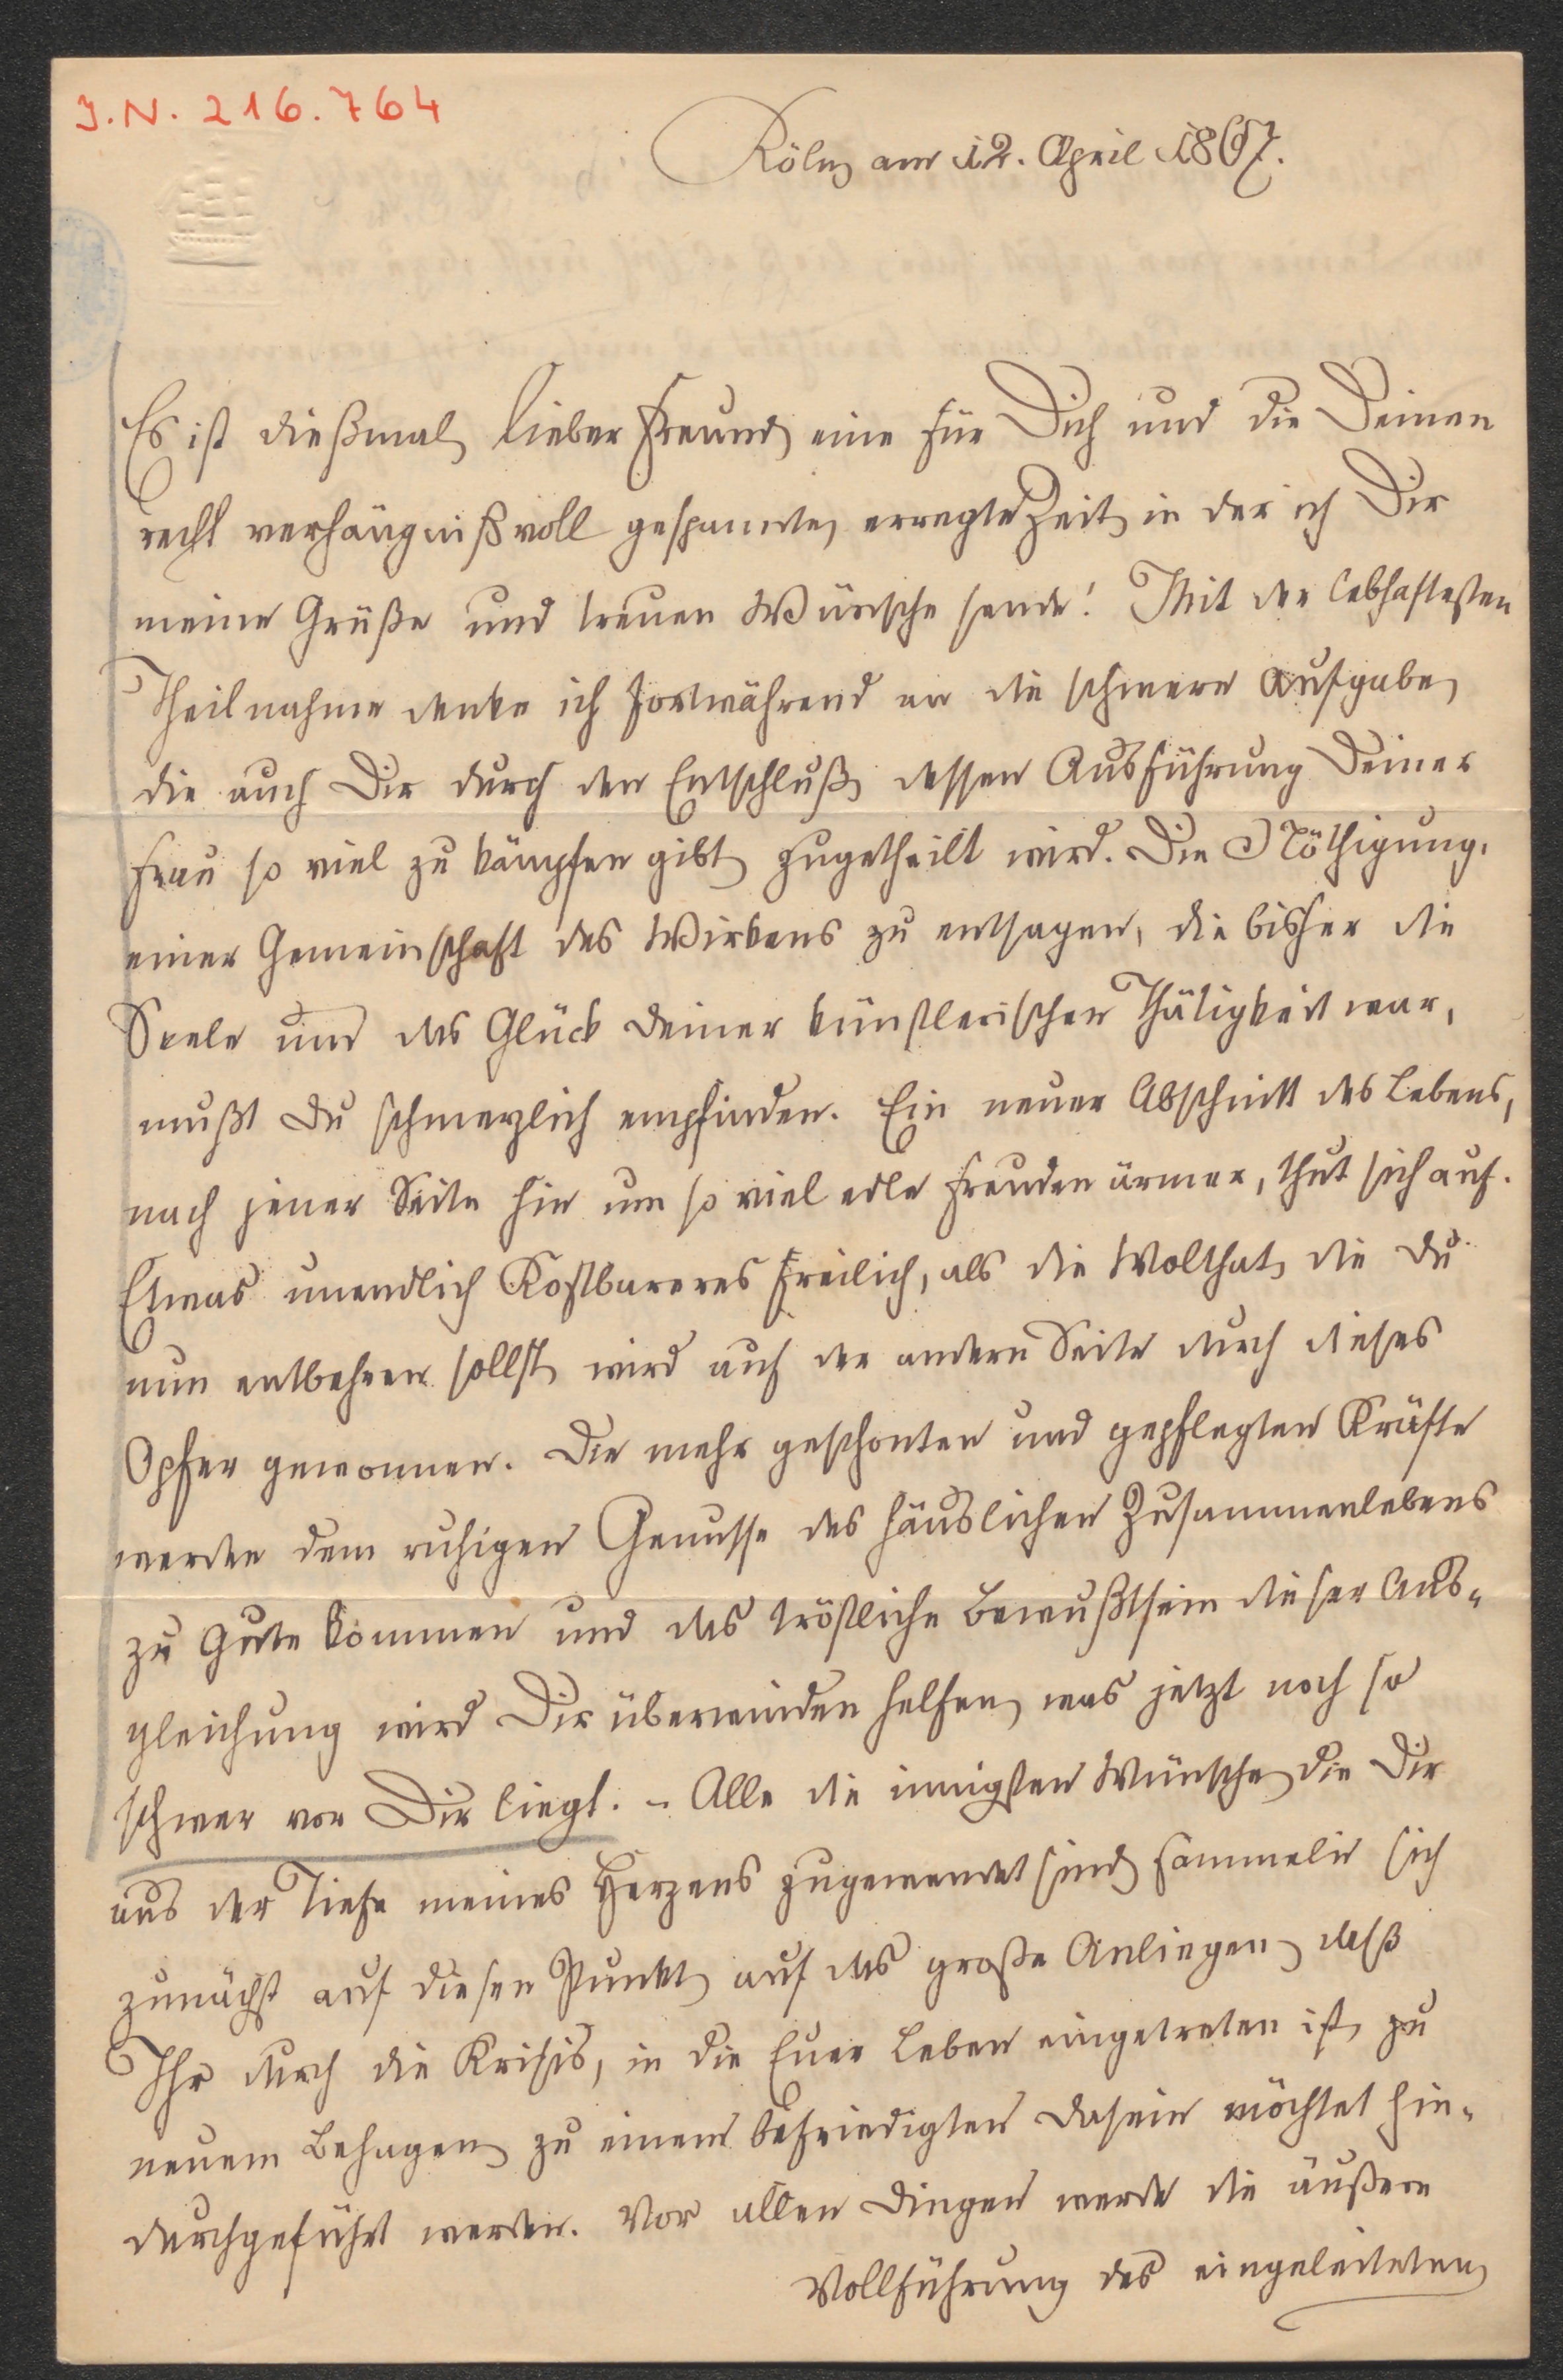 J.N. 216.764
Köln, am 12. April 1867.
Es ist dießmal, lieber Freund, eine für Dich und die Deinen
recht verhängnißvoll gespannte, erregte Zeit, in der ich Dir
meine Grüße und treuen Wünsche sende! Mit der lebhaftesten
Theilnahme denke ich fortwährend an die schwere Aufgabe,
die auch Dir durch den Entschluß, dessen Ausführung Deiner
Frau so viel zu kämpfen gibt, zugetheilt wird. Die Nöthigung,
einer Gemeinschaft des Wirkens zu entsagen, die bisher die
Seele und das Glück Deiner künstlerischen Thätigkeit war,
mußt Du schmerzlich empfinden. Ein neuer Abschnitt des Lebens,
nach jener Seite hin um so viel edle Freuden ärmer, thut sich auf.
Etwas unendlich Kostbareres freilich, als die Wolthat, die Du
nun entbehren sollst, wird auf der andern Seite durch dieses
Opfer gewonnen. Die mehr geschonten und gepflegten Kräfte
werden dem ruhigen Genusse des häuslichen Zusammenlebens
zu Gute kommen und das tröstliche Bewußtsein dieser Aus-
gleichung wird Dir überwinden helfen, was jetzt noch so
schwer vor Dir liegt. – Alle die innigsten Wünsche, die Dir
aus der Tiefe meines Herzens zugewendet sind, sammeln sich
zunächst auf diesen Punkt, auf das große Anliegen, daß
Ihr durch die Krisis, in die Euer Leben eingetreten ist, zu
neuem Behagen, zu einem befriedigten Dasein möchtet hin-
durchgeführt werden. Vor allen Dingen werde die äußere
Vollführung des eingeleiteten